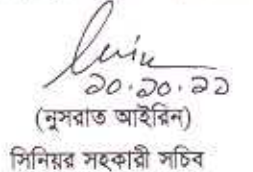 ২০.১০.২১
(নুসরাত আইরিন)
সিনিয়র সহকারী সচিব